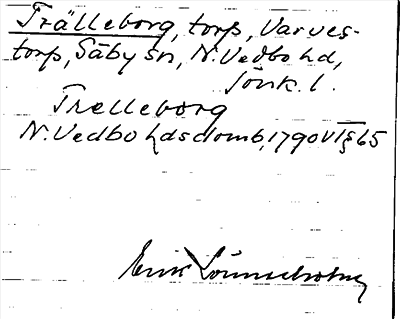 Trälleborg, torp, Varves-
torp, Säby sn, N. Vedbo hd,
Jönk. l.
Trelleborg
N. Vedbo hdsdomb, 1790 VT § 65
Erik